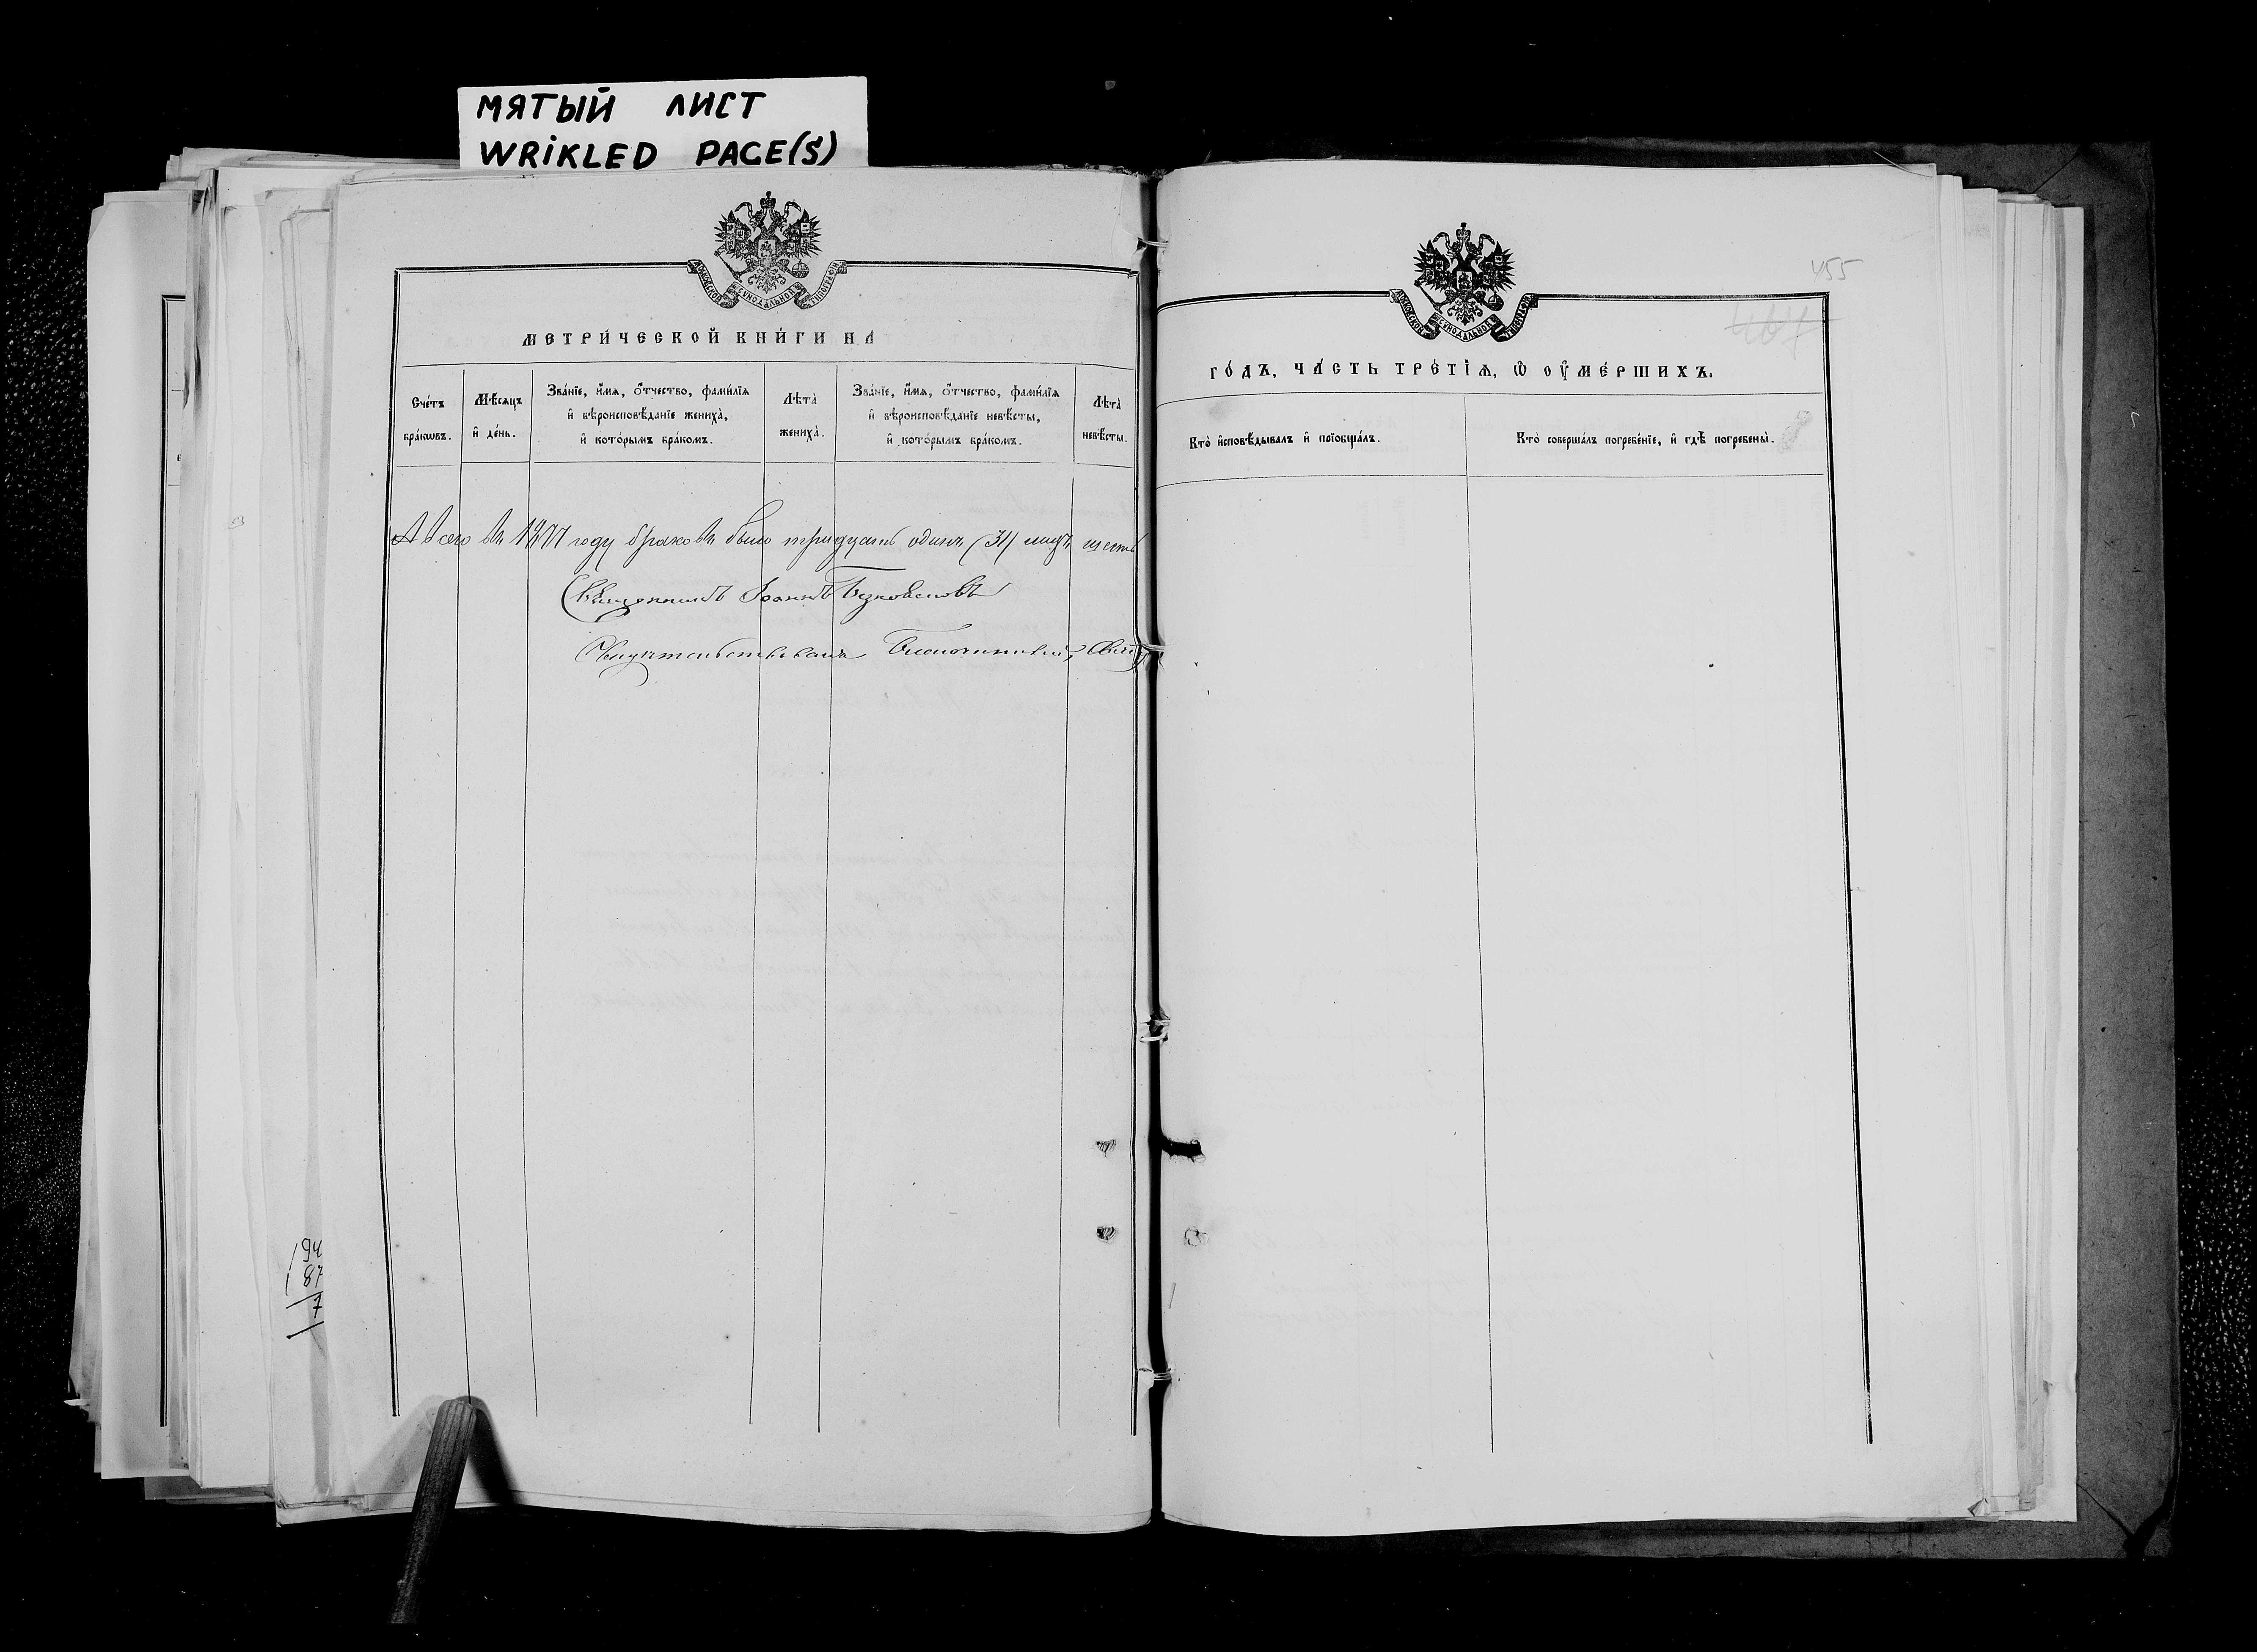 МЯТЫЙ ЛИСТ
WRiKLED PAGE(S)
МОСКОВСКОЙ СѴНОДАЛЬНОЙ ТИПОГРАФІИ
МЕТРИ́ЧЕСКОЙ КНИ́ГИ НА
Сче́тъ бра́кѡвъ.
Мѣ́сяцъ и҆ де́нь.
Зва́нїе, и҆́мѧ, ѻ҆́тчество, фами́лїѧ
и҆ вѣроисповѣ́данїе жениха̀,
и҆ кото́рымъ бра́комъ.
Лѣта̀ жениха̀.
Зва́нїе, и҆́мѧ, ѻ҆́тчество, фами́лїѧ
и҆ вѣроисповѣ́данїе невѣ́сты,
и҆ кото́рымъ бра́комъ.
Лѣта̀ невѣ́сты.
А всего въ 1877 году браковъ было тридцать одинъ (31)
Священникъ Іоаннъ
Свидѣтельствовалъ Благочинный,
94
87
7
МОСКОВСКОЙ СѴНОДАЛЬНОЙ ТИПОГРАФІИ
455
ГО́ДЪ, ЧА́СТЬ ТРЕ́ТЇѦ, Ѿ ОУ҆МЕ́РШИХЪ.
Кто̀ и҆сповѣ́дывалъ и҆ прїобща́лъ.
Кто̀ соверша́лъ погребе́нїе, и҆ гдѣ̀ погребены̀.